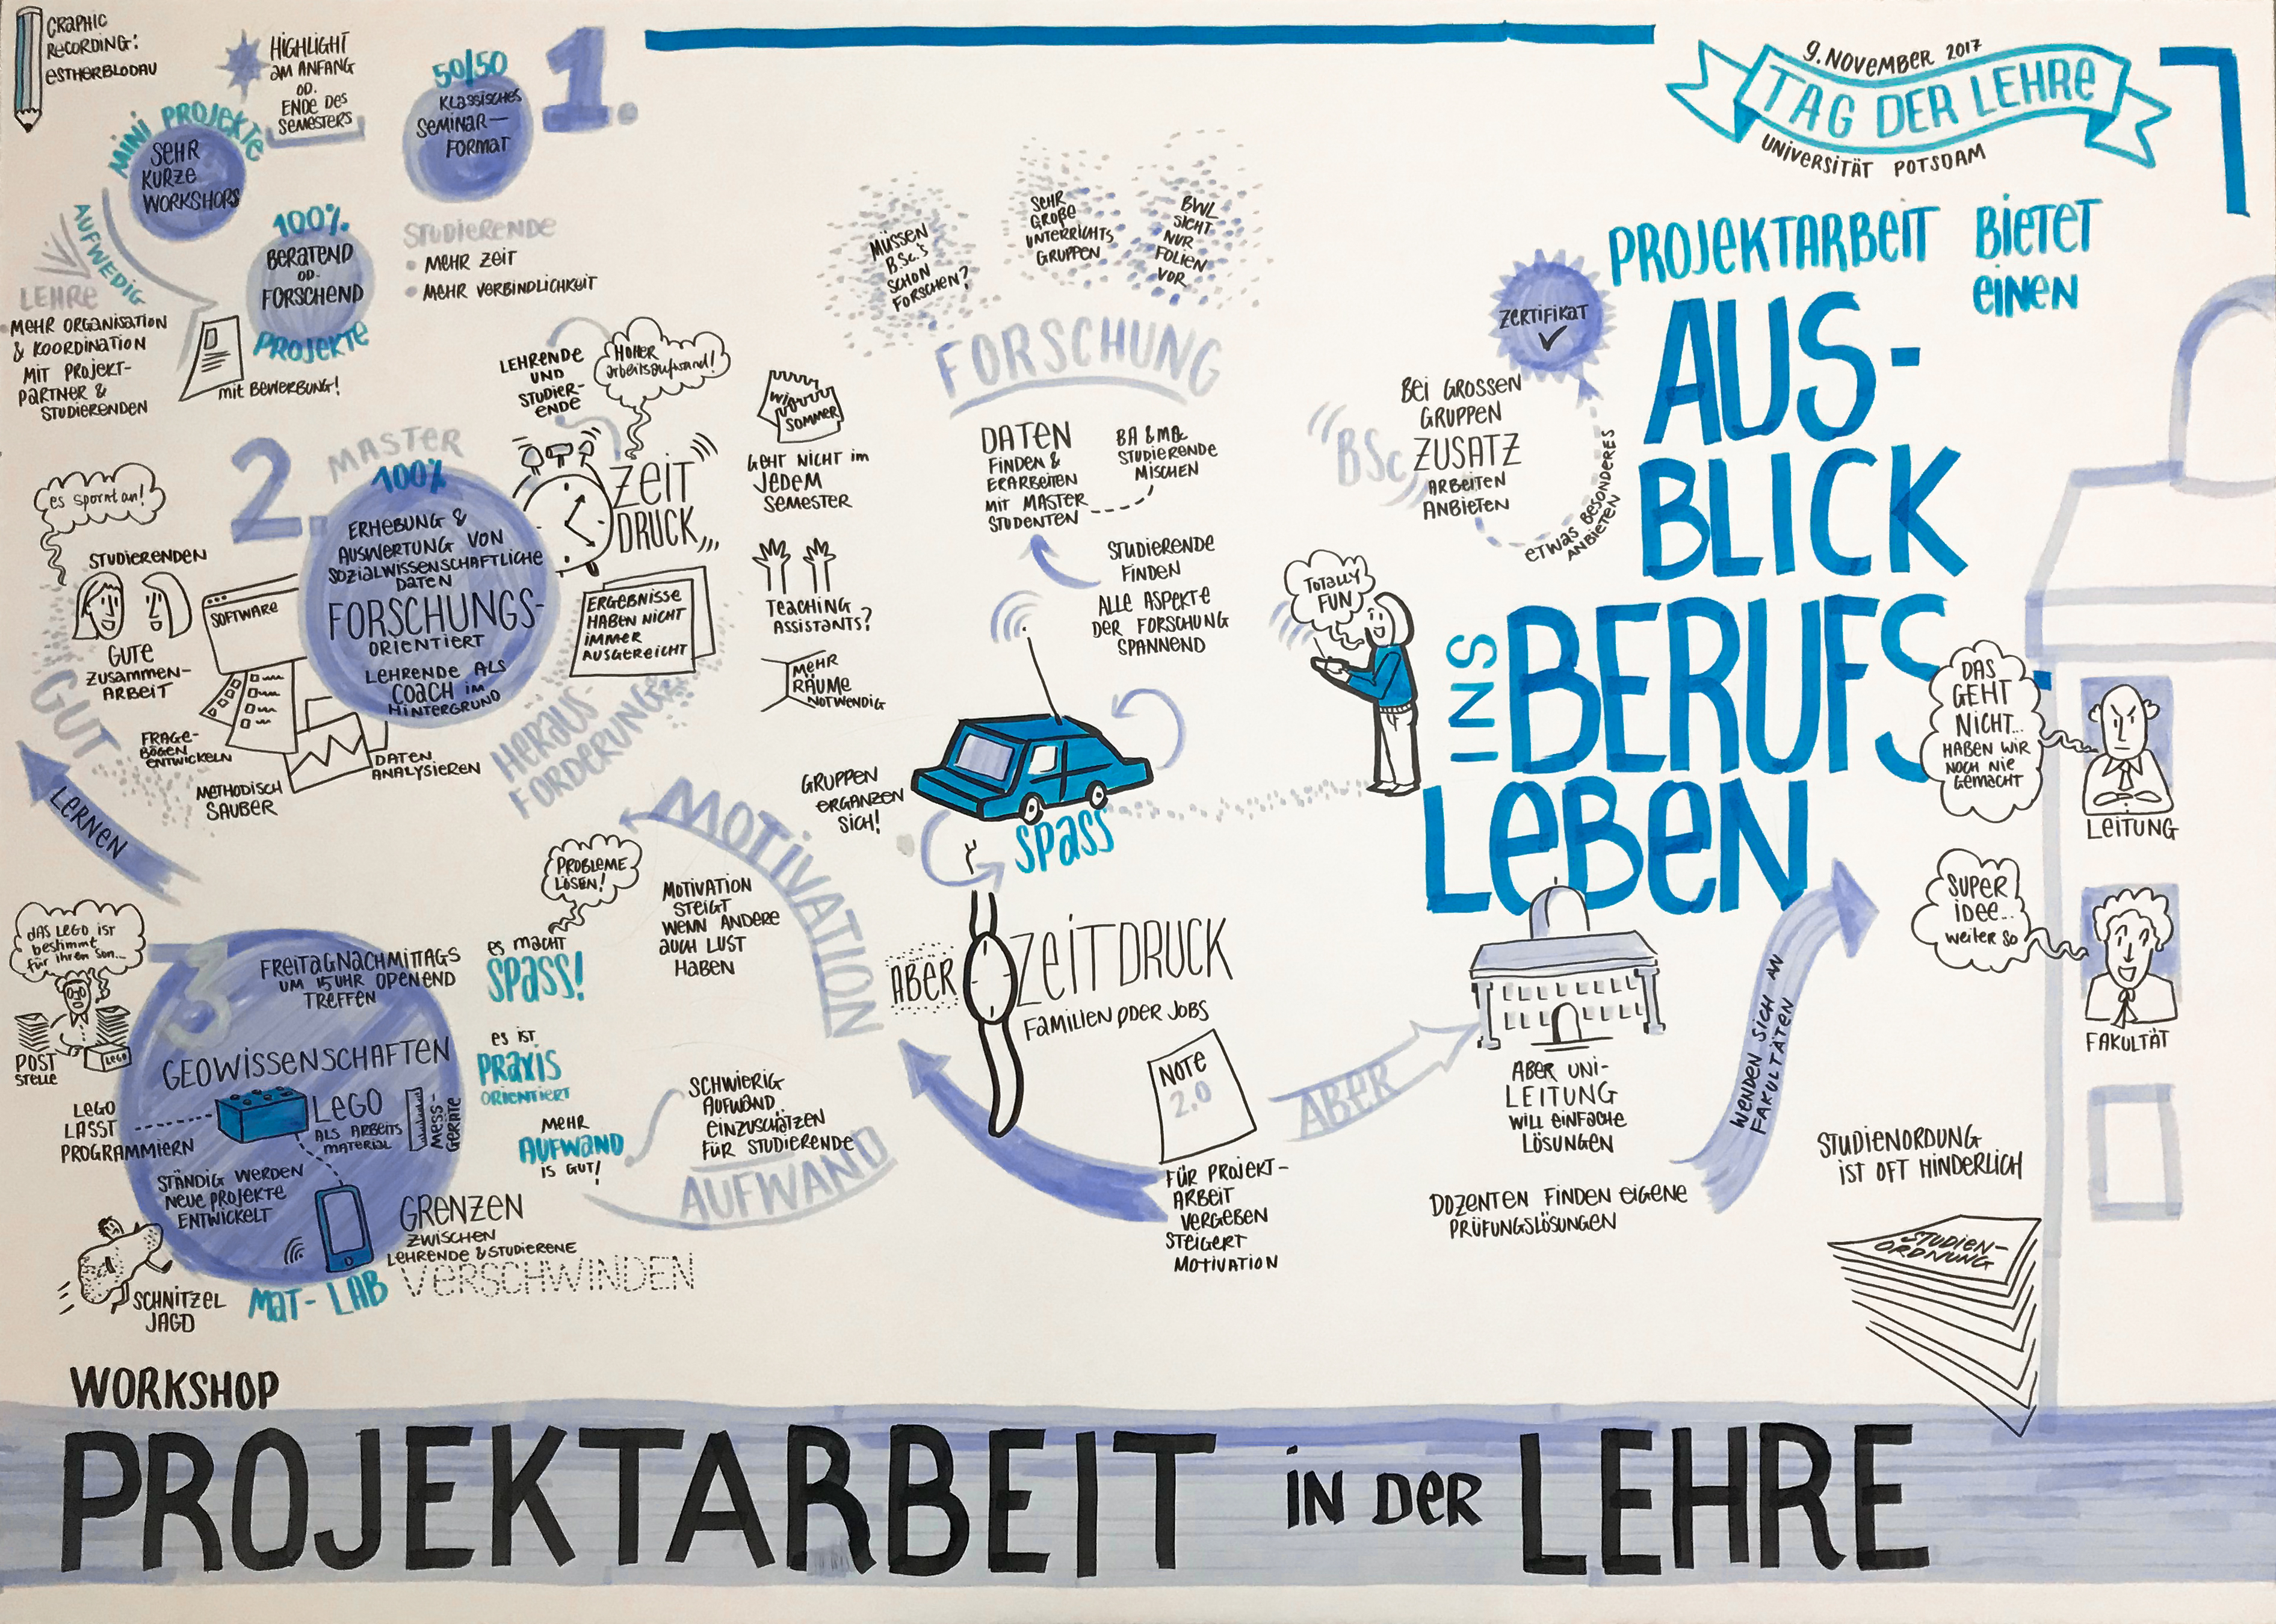 GRAPHIC
RECORDING:
ESTHERBLODAU
HIGHLIGHT
AM ANFANG
OD.
ENDE DES
SEMESTERS
MINI PROJEKTE
SEHR
KURZE
WORKSHOPS
50/50
KLASSISCHES
SEMINAR-
FORMAT
1.
100%
BERATEND
OD.
FORSCHEND
PROJEKTE
mit BEWERBUNG!
STUDIERENDE
MEHR ZEIT
MEHR VERBINDLICHKEIT
AUFWEDIG
LEHRE
MEHR ORGANISATION
& KOORDINATION
MIT PROJEKT-
PARTNER &
STUDIERENDEN
2.
MASTER
100%
ERHEBUNG &
AUSWERTUNG VON
SOZIALWISSENSCHAFTLICHE
DATEN
FORSCHUNGS-
ORIENTIERT
LEHRENDE ALS
COACH IM
HINTERGRUND
es spornt an!
STUDIERENDEN
GUTE
ZUSAMMEN-
ARBEIT
GUT
SOFTWARE
FRAGE-
BÖGEN
ENTWICKELN
METHODISCH
SAUBER
DATEN
ANALYSIEREN
LERNEN
LEHRENDE
UND
STUDIER-
ENDE
HOHER
Arbeitsaufwand!
ZEIT
DRUCK
ERGEBNISSE
HABEN NICHT
IMMER
AUSGEREICHT
HERAUS-
FORDERUNG
SOMMER
GEHT NICHT IM
JEDEM
SEMESTER
TEACHING
ASSISTANTS?
MEHR
RÄUME
NOTWENDIG
3
FREITAGNACHMITTAGS
UM 15 UHR OPENEND
TREFFEN
GEOWISSENSCHAFTEN
LEGO
ALS ARBEITS
MATERIAL
MESS-
GERÄTE
STÄNDIG WERDEN
NEUE PROJEKTE
ENTWICKELT
MAT-LAB
DAS LEGO IST
bestimmt
für ihren Son...
POST
STELLE
LEGO
LEGO
LÄSST
PROGRAMMIERN
SCHNITZEL
JAGD
GRENZEN
ZWISCHEN
LEHRENDE & STUDIERENE
VERSCHWINDEN
PROBLEME
LÖSEN!
es macht
SPASS!
es ist
PRAXIS
ORIENTIERT
MEHR
AUFWAND
IS GUT!
MOTIVATION
MOTIVATION
STEIGT
WENN ANDERE
AUCH LUST
HABEN
SCHWIERIG
AUFWAND
EINZUSCHÄTZEN
FÜR STUDIERENDE
AUFWAND
MÜSSEN
B.Sc.'s
SCHON
FORSCHEN?
SEHR
GROßE
UNTERRICHTS
GRUPPEN
BWL
SICHT
NUR
FOLIEN
VOR
FORSCHUNG
DATEN
FINDEN &
ERARBEITEN
MIT MASTER
STUDENTEN
BA & MA
STUDIERENDE
MISCHEN
STUDIERENDE
FINDEN
ALLE ASPEKTE
DER FORSCHUNG
SPANNEND
GRUPPEN
ERGÄNZEN
SICH!
SPASS
TOTALLY
FUN
ABER
ZEITDRUCK
FAMILIEN ODER JOBS
NOTE
2.0
FÜR PROJEKT-
ARBEIT
VERGEBEN
STEIGERT
MOTIVATION
ABER
ABER UNI-
LEITUNG
WILL EINFACHE
LÖSUNGEN
DOZENTEN FINDEN EIGENE
PRÜFUNGSLÖSUNGEN
WENDEN SICH AN
FAKULTÄTEN
BSc
BEI GROSSEN
GRUPPEN
ZUSATZ
ARBEITEN
ANBIETEN
ETWAS BESONDERES
ANBIETEN
ZERTIFIKAT
9. NOVEMBER 2017
TAG DER LEHRE
UNIVERSITÄT POTSDAM
PROJEKTARBEIT BIETET
EINEN
AUS-
BLICK
INS
BERUFS-
LEBEN
DAS
GEHT
NICHT...
HABEN WIR
NOCH NIE
GEMACHT
LEITUNG
SUPER
IDEE...
weiter so
FAKULTÄT
STUDIENORDUNG
IST OFT HINDERLICH
STUDIEN-
ORDNUNG
WORKSHOP
PROJEKTARBEIT IN DER LEHRE